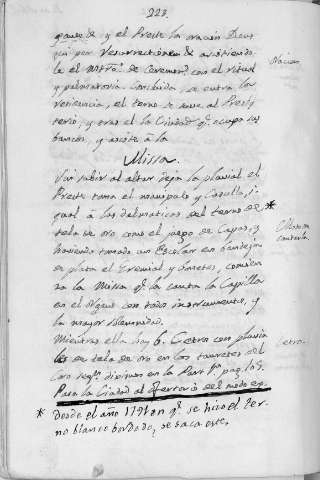 223.
y el Preste la oracion Deus
qui per Resurrectionem &c asistiendo
le el Mtro. de Cerem. con el ritual
y palmatoria. Concluida, se entra la
Oracion.
reverencia, el terno se sube al Presbi
terio, y tras el la Ciudad q.e ocupa sus
bancos, y asiste á la
Missa.
Sin subir al altar deja la pluvial el
Preste toma el manipulo y Casulla, i
gual á las dalmaticas del terno de *
tela de oro como el juego de Capas, y
Missa con
cantoria.
haviendo tomado un Escolar en bandeja
de plata el Gremial y guantes, comien
za la Missa q.e la canta la Capilla
en el organo con todos instrumentos, y
la mayor solemnidad.
Mientras ella hay 6. Cetros con pluvia
les de tela de oro en los taburetes del
Cetros.
Coro segn. diximos en la Part.e pag. 105.
Pasa la Ciudad al Ofertorio del modo en
* Desde el año 1791 en q.e se hizo el ter-
no blanco bordado, se saca este.